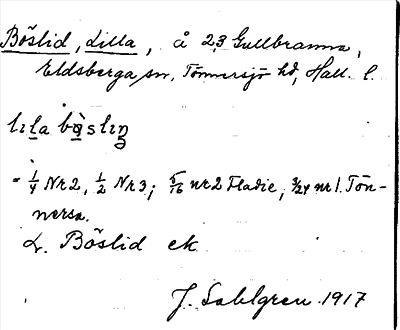 Böslid, Lilla, å 2,3 Gullbranna,
Eldsberga sn, Tönnersjö hd, Hall. l.
lila bösliŋ
= 1/4 Nr 2, 1/2 Nr 3; 5/16 nr 2 Fladie, 3/24 nr 1. Tön-
nersa.
L. Böslid ek
J. Sahlgren 1917